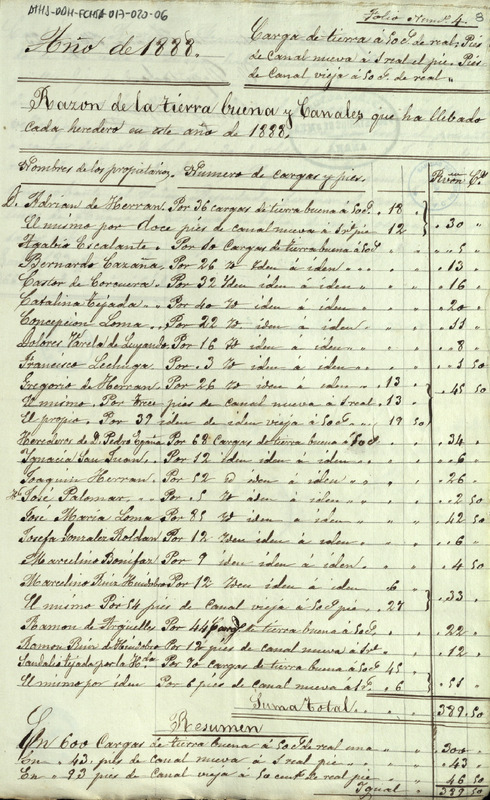 AMHS-DOH-FCHTA-017-020-06
Folio Num.º 4. 3
Año de 1888.
Carga de tierra á 50 C.s de real. Piés
de Canal nueva á 1 real el pié. Piés
de Canal vieja á 50 C.s de real
Razon de la tierra buena y Canales, que ha llebado
cada heredero en este año de 1888.
Nombres de los propietários. Numero de cargas y piés. R.s von C.s
D. Adrian de Herran. Por 36 cargas de tierra buena á 50 C.s 18
El mismo por doce piés de canal nueva á 1 r.l pié 12 30 "
Agabio Escalante. Por 10 Cargas de tierra buena á 50 C.s " 5 "
Bernardo Cazaña. Por 26 id iden á iden " 13 "
Castor de Corcuera. Por 32 iden iden á iden " 16 "
Catalina Tejada. Por 40 id iden á iden " 20 "
Concepcion Loma. Por 22 id iden á iden " 11 "
Dolores Varela de Luyando Por 16 id iden á iden " 8 "
Francisco Lechuga. Por 3 id iden á iden " 1 50
Gregorio de Herran. Por 26 id iden á iden 13
El mismo. Por trece piés de canal nueva á 1 real. 13 45 50
El propio. Por 39 iden de iden vieja á 50 C.s 19 50
Herederos de D. Pedro Por 68 Cargas de tierra buena á 50 C.s " 34 "
Ignacia San Juan. Por 12 iden iden á iden " 6 "
Joaquin Herran. Por 52 id iden á iden " 26 "
José Palomar. Por 5 id iden á iden " 2 50
José Maria Loma Por 85 id iden á iden " 42 50
Josefa Gonzalez Roldan Por 12 iden iden á iden " 6 "
Marcelino Bonifaz Por 9 iden iden á iden " 4 50
Marcelino Ruiz Huidobro Por 12 iden iden á iden 6
El mismo Por 54 piés de Canal vieja á 50 C.s pié 27 33 "
Ramon de Arguelles Por 44 Cargas de tierra buena á 50 C.s " 22 "
Ramon Ruiz de Huidobro Por 12 piés de canal nueva á 1 r.l " 12 "
Sandalio Tejada por la Por 90 cargas de tierra buena á 50 C.s 45
El mismo por iden Por 6 piés de Canal nueva á 1 r. 6 51 "
Suma total 389 50
Resumen
En 600 Cargas de tierra buena á 50 C.s de real una " 300 "
En 43 piés de canal nueva á 1 real pié " 43 "
En 93 piés de Canal vieja á 50 cent.s de real pié 46 50
Igual 389 50